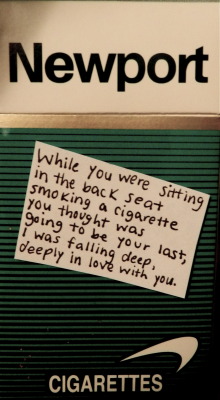 Newport
While you were sitting
in the back seat
smoking a cigarette
you thought was
going to be your last,
I was falling deep,
deeply in love with you.
CIGARETTES